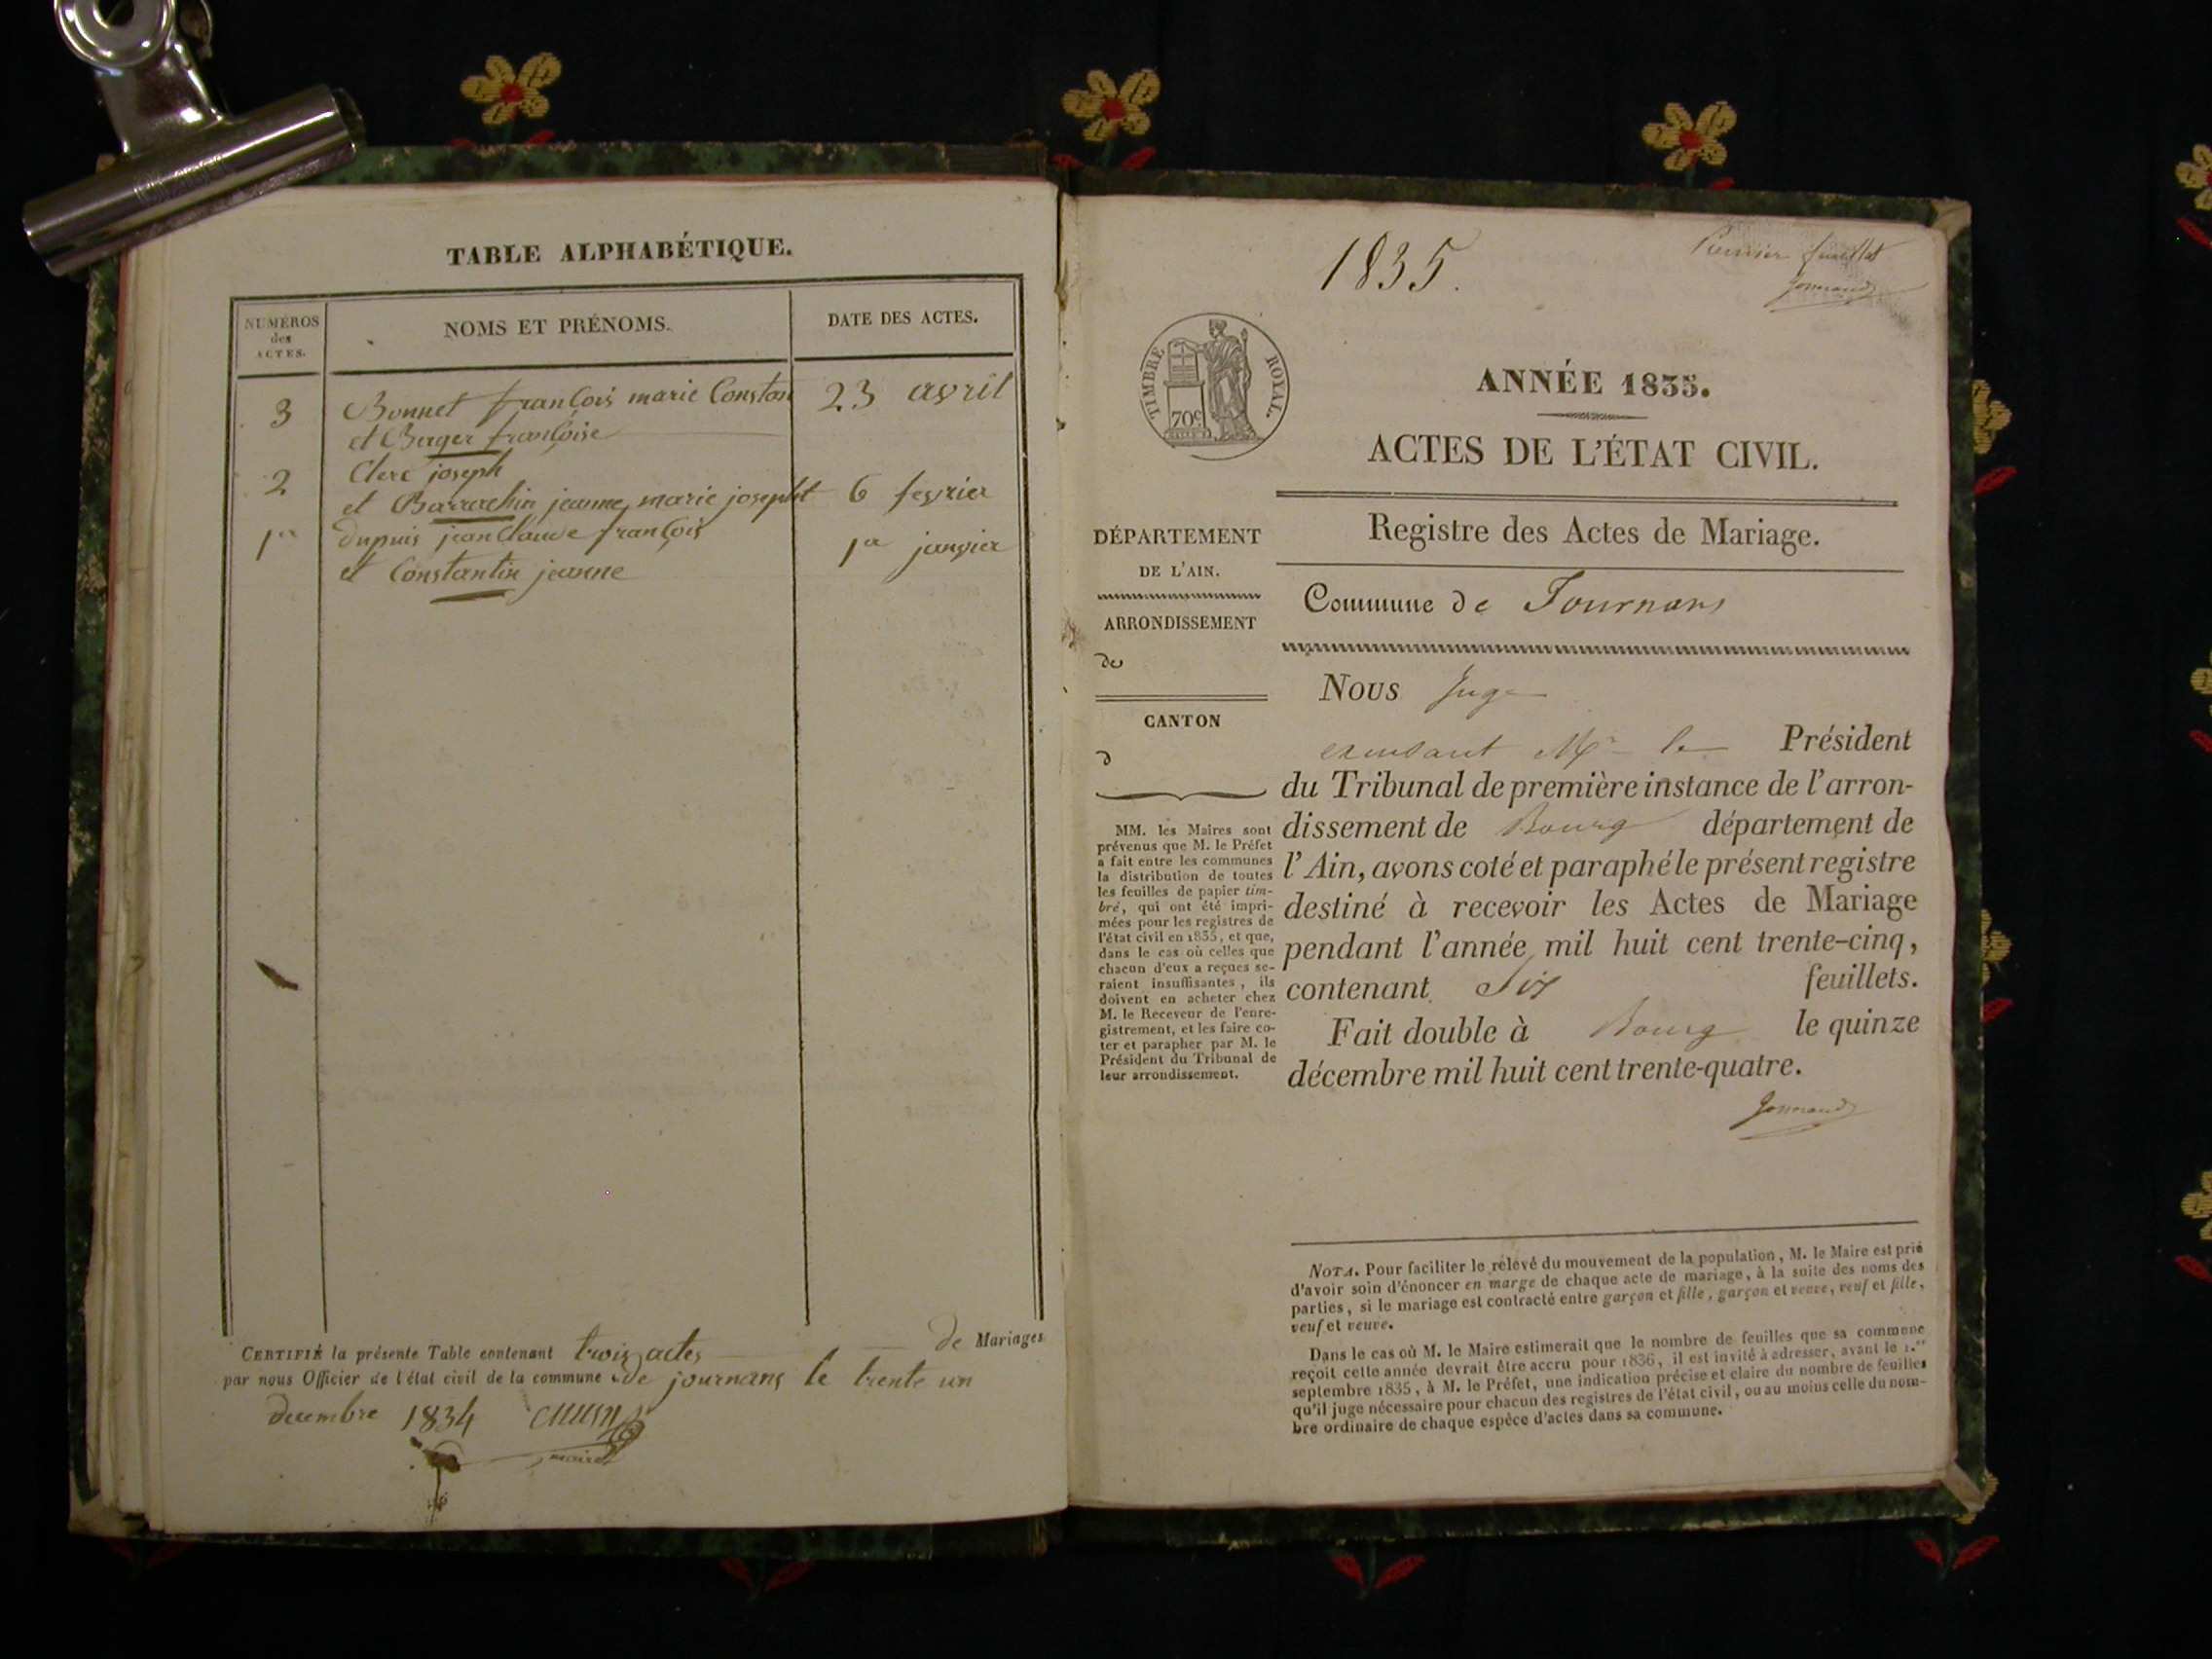 TABLE ALPHABÉTIQUE.
NUMÉROS
des
ACTES.
NOMS ET PRÉNOMS.
DATE DES ACTES.
3 Bonnet françois marie Constan 23 avril
et Berger françoise
Clerc joseph
2 et Barrachin jeanne marie josepht 6 fevrier
1er dupuis jean Claude françois 1er janvier
et Constantin jeanne
CERTIFIÉ la présente Table contenant trois actes de Mariages
par nous Officier de l'état civil de la commune de journans le trente un
decembre 1834
maire
1835.
Premier feuillet
TIMBRE ROYAL.
70c
ANNÉE 1835.
ACTES DE L'ÉTAT CIVIL.
Registre des Actes de Mariage.
Commune de Journans
DÉPARTEMENT
DE L'AIN.
ARRONDISSEMENT
de
CANTON
d
MM. les Maires sont
prévenus que M. le Préfet
a fait entre les communes
la distribution de toutes
les feuilles de papier tim-
bré, qui ont été impri-
mées pour les registres de
l'état civil en 1835, et que,
dans le cas où celles que
chacun d'eux a reçues se-
raient insuffisantes, ils
doivent en acheter chez
M. le Receveur de l'enre-
gistrement, et les faire co-
ter et parapher par M. le
Président du Tribunal de
leur arrondissement.
Nous Juge
Mr le Président
du Tribunal de première instance de l'arron-
dissement de Bourg département de
l'Ain, avons coté et paraphé le présent registre
destiné à recevoir les Actes de Mariage
pendant l'année mil huit cent trente-cinq,
contenant Six feuillets.
Fait double à Bourg le quinze
décembre mil huit cent trente-quatre.
NOTA. Pour faciliter le relevé du mouvement de la population, M. le Maire est prié
d'avoir soin d'énoncer en marge de chaque acte de mariage, à la suite des noms des
parties, si le mariage est contracté entre garçon et fille, garçon et veuve, veuf et fille,
veuf et veuve.
Dans le cas où M. le Maire estimerait que le nombre de feuilles que sa commune
reçoit cette année devrait être accru pour 1836, il est invité à adresser, avant le 1.er
septembre 1835, à M. le Préfet, une indication précise et claire du nombre de feuilles
qu'il juge nécessaire pour chacun des registres de l'état civil, ou au moins celle du nom-
bre ordinaire de chaque espèce d'actes dans sa commune.